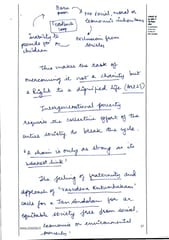 Born poor
No social, moral or economic inheritance
Inability to provide for children
Exclusion from society
This makes the task of
overcoming it not a charity but
a Right to a dignified life (Art 21)
Intergenerational poverty
requires the collective effort of the
entire society to break the cycle.
"A chain is only as strong as its
weakest link"
The feeling of fraternity and
approach of "Vasudeva Kutumbakam"
calls for a Jan Andolan for an
equitable society free from social,
economic or environmental
poverty.